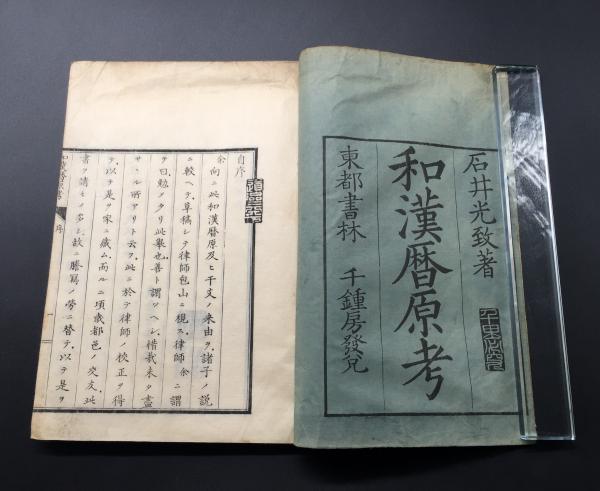 石井光致著
和漢暦原考
東都書林　千鍾房發兌
自序
余向ニ此和漢暦原及ヒ干支ノ来由ヲ諸子ノ説
ニ較ヘテ草稿シテ律師包山ニ視ス律師余ニ謂
テ曰勉メタリ此擧也善ト謂ツヘシ惜哉未タ盡
サヽル所アリト云ヲ此ニ於テ律師ノ校正ヲ得
テ以テ是ヲ家ニ藏ム而ルニ項歳都邑ノ交友此
書ヲ請モノ多シ故ニ謄寫ノ勞ニ替テ以テ是ヲ
序